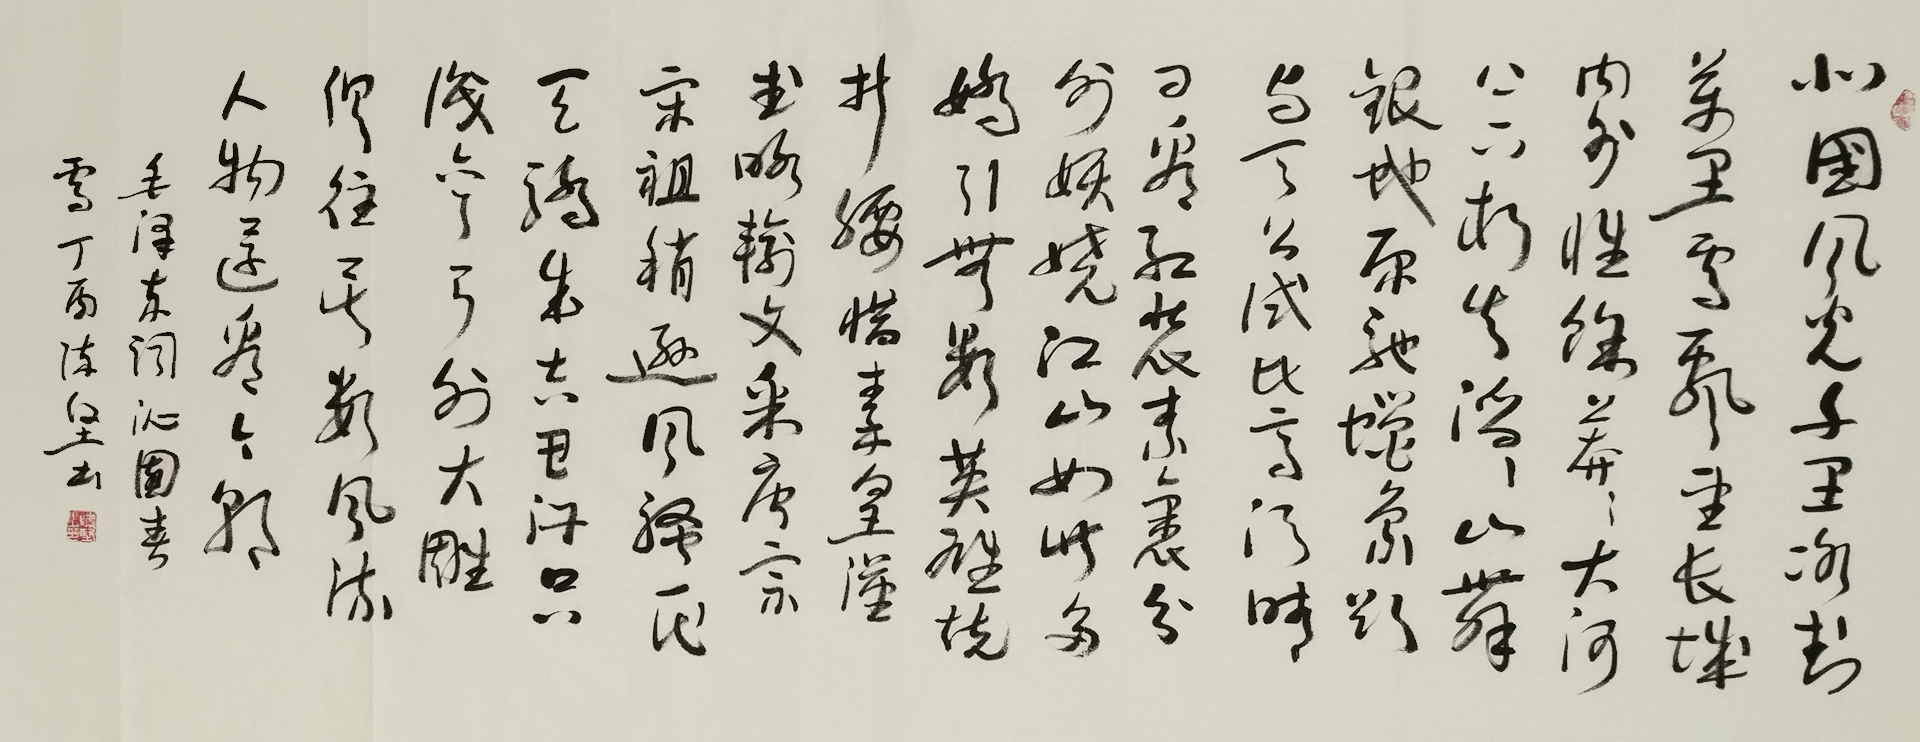 北國风光千里冰封
萬里雪飄望长城
内外惟馀莽々大河
上下顿失滔々山舞
銀蛇原驰蠟象欲
与天公试比高须晴
日看红装素裹分
外妖娆江山如此多
娇引無数英雄竞
折腰惜秦皇漢
武略输文采唐宗
宋祖稍逊风骚一代
天骄成吉思汗只
识弯弓射大雕
俱往矣数风流
人物還看今朝
毛泽东词沁園春
雪丁酉陈坚书